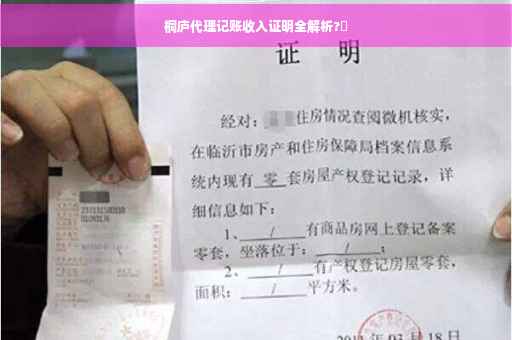 桐庐代理记账收入证明全解析?
证 明
经对：住房情况查阅微机核实，
在临沂市房产和住房保障局档案信息系
统内现有 零 套房屋产权登记记录，详
细信息如下：
1、 / 有商品房网上登记备案
零套，坐落位于： / ；
2、 / 有产权登记房屋零套，
面积： / 平方米。
03月18日